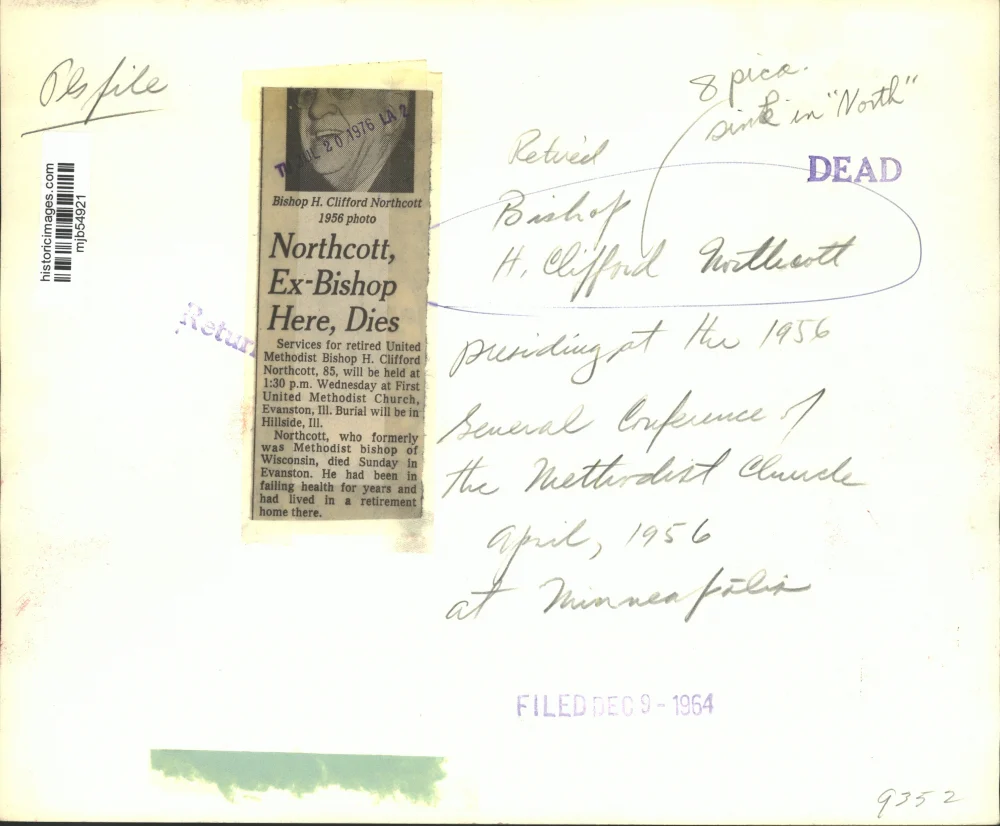 Pls file
8 pica.
sink in "North"
historicimages.com
mjb54921
JUL 20 1976 LA 2
Bishop H. Clifford Northcott
1956 photo
Northcott,
Ex-Bishop
Here, Dies
Services for retired United
Methodist Bishop H. Clifford
Northcott, 85, will be held at
1:30 p.m. Wednesday at First
United Methodist Church,
Evanston, Ill. Burial will be in
Hillside, Ill.
Northcott, who formerly
was Methodist bishop of
Wisconsin, died Sunday in
Evanston. He had been in
failing health for years and
had lived in a retirement
home there.
Return
DEAD
Retired
Bishop
H. Clifford Northcott
presiding at the 1956
General Conference of
the Methodist Church
April, 1956
at Minneapolis
FILED DEC 9 - 1964
9352